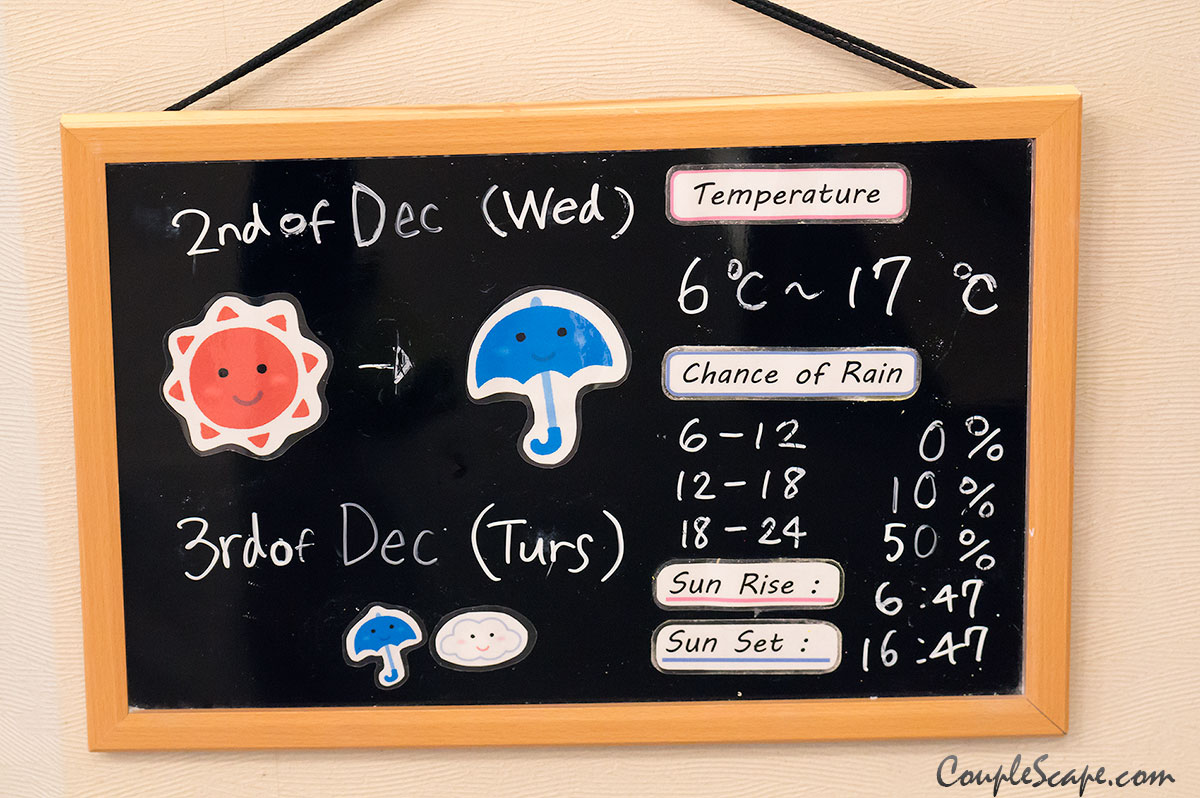 2nd of Dec (Wed)
3rd of Dec (Turs)
Temperature
6°C ~ 17 °C
Chance of Rain
6 - 12 0 %
12 - 18 10 %
18 - 24 50 %
Sun Rise : 6:47
Sun Set : 16:47
CoupleScape.com